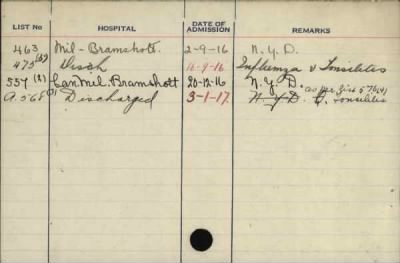 LIST No HOSPITAL DATE OF ADMISSION REMARKS
463 Mil - Bramshott. 2-9-16 N.Y.D.
475(2) Disch 16-9-16 Influenza v Tonsilites
557(2) Can. Mil. Bramshott 20-12-16 N.Y.D. as per List 576(4)
A.568(3) Discharged 3-1-17. N.Y.D. Tonsilites